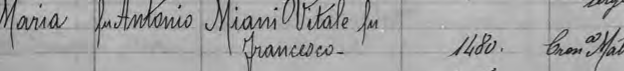 Maria fu Antonio Miani Vitale fu
Francesco - 1480. Cron° Mat